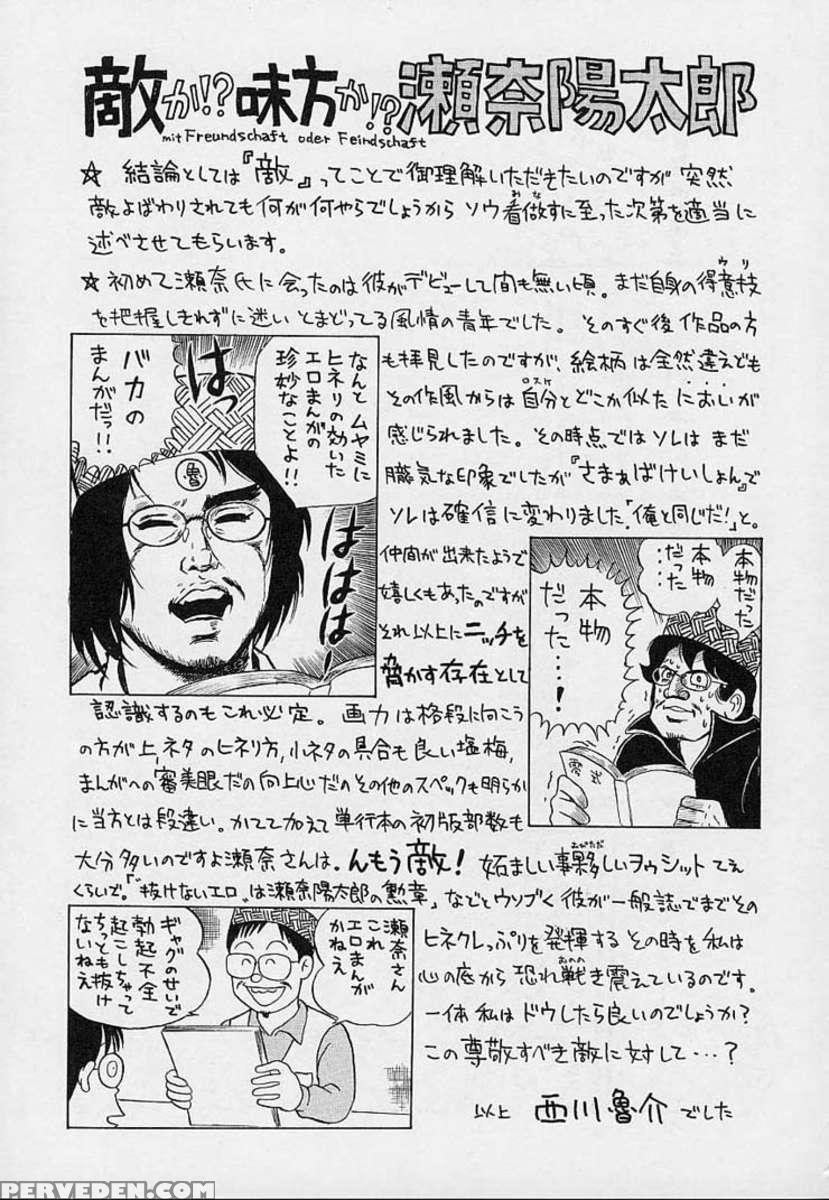 敵か!?味方か!?瀬奈陽太郎
mit Freundschaft oder Feindschaft
☆ 結論としては『敵』ってことで御理解いただきたいのですが 突然
敵よばわりされても何が何やらでしょうから ソウ看做すに至った次第を適当に
みな
述べさせてもらいます。
☆ 初めて瀬奈氏に会ったのは彼がデビューして間も無い頃。まだ自身の得意技
ウリ
を把握しきれずに迷い とまどってる風情の青年でした。そのすぐ後 作品の方
も拝見したのですが、絵柄は全然違えども
その作風からは自分とどこか似た においが
ロスケ
感じられました。その時点では ソレは まだ
朧気な印象でしたが『さまぁばけいしょん』で
ソレは確信に変わりました「俺と同じだ!」と。
なんと ムヤミに
ヒネリの効いた
エロまんがの
珍妙なことよ!!
はっ
バカの
まんがだっ!!
魯
ははは
仲間が出来たようで
嬉しくもあったのですが
それ以上にニッチを
脅かす存在として
本物だった
本物
だった……
本物
だった…!
零式
認識するのもこれ必定。画力は格段に向こう
の方が上、ネタのヒネリ方、小ネタの具合も良い塩梅、
まんがへの審美眼だの向上心だのその他のスペックも明らか
に当方とは段違い。かてて加えて単行本の初版部数も
大分多いのですよ瀬奈さんは。んもう敵! 妬ましい事夥しいヲゥシット てえ
おびただ
くらいで。"抜けないエロ"は瀬奈陽太郎の勲章」などとウソブく彼が一般誌でまでその
ヒネクレっぷりを発揮する その時を私は
心の底から恐れ戦き震えているのです。
おのの
一体 私は ドウしたら良いのでしょうか?
この尊敬すべき敵に対して…?
瀬奈さん
これ
エロまんが
かねえ
ギャグのせいで
勃起不全
起こしちゃって
ちっとも抜け
ないねえ
以上 西川魯介 でした
PERVEDEN.COM